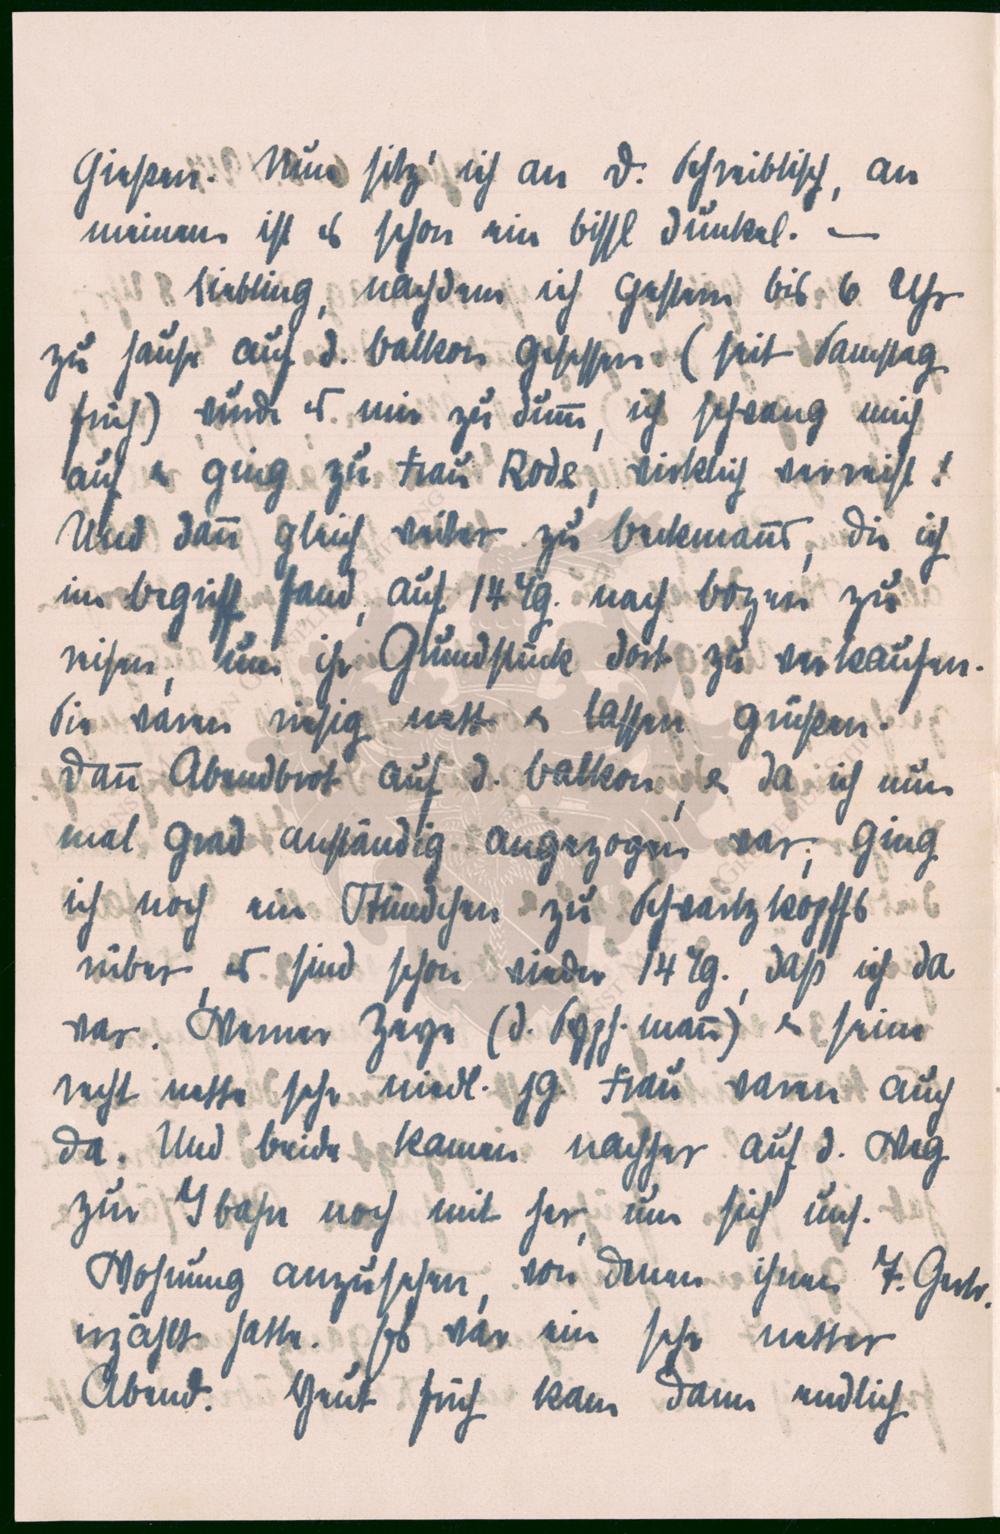 Gießen. Nun sitz' ich an d. Schreibtisch, an
meinem ist es schon ein bissl dunkel. —
Liebling, nachdem ich gestern bis 6 Uhr
zu Hause auf d. Balkon gesessen (seit Samstag
früh) wurde es mir zu dum̅, ich schwang mich
auf & ging zu Frau Rode, wirklich verreist!
Und dan̅ gleich weiter zu Beckman̅s, die ich
im Begriff fand, auf 14 Tg. nach Bozen zu
reisen, um ihr Grundstück dort zu verkaufen.
Sie waren riesig nett & lassen grüßen.
Dan̅ Abendbrot auf d. Balkon, & da ich nun
mal grad anständig angezogen war, ging
ich noch ein Stündchen zu Schwartzkopffs
rüber, es sind schon wieder 14 Tg., daß ich da
war. Werner Zeye (d. man̅) & seine
recht nette sehr niedl. jg. Frau waren auch
da. Und beide kamen nachher auf d. Weg
zur S bahn noch mit her, um sich uns.
Wohnung anzusehen, von denen ihnen F. Gertr.
erzählt hatte. Es war ein sehr netter
Abend. Heut früh kam dann endlich